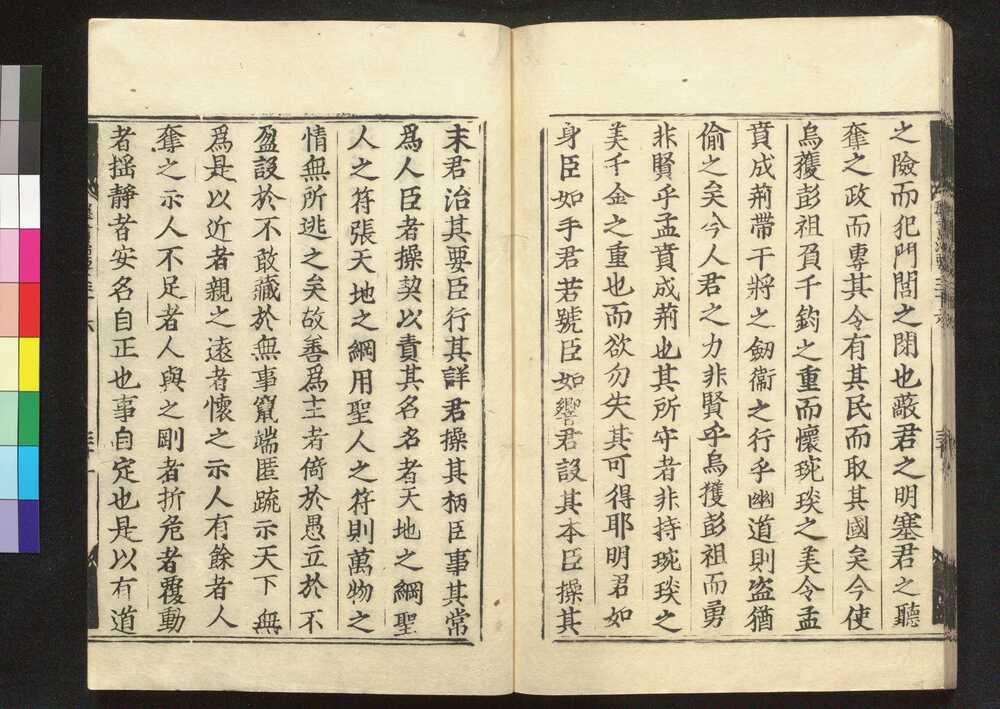 之險而犯門閭之閉也蔽君之明塞君之聽
奪之政而專其令有其民而取其國矣今使
烏獲彭祖負千鈞之重而懷琬琰之美令孟
賁成荊帶干將之劒衞之行乎幽道則盗猶
偷之矣今人君之力非賢乎烏獲彭祖而勇
非賢乎孟賁成荊也其所守者非持琬琰之
美千金之重也而欲勿失其可得耶明君如
身臣如手君若號臣如響君設其本臣操其
末君治其要臣行其詳君操其柄臣事其常
爲人臣者操契以責其名名者天地之綱聖
人之符張天地之綱用聖人之符則萬物之
情無所逃之矣故善爲主者倚於愚立於不
盈設於不敢藏於無事竄端匿疏示天下無
爲是以近者親之遠者懷之示人有餘者人
奪之示人不足者人與之剛者折危者覆動
者揺靜者安名自正也事自定也是以有道